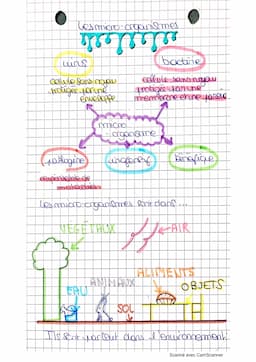 Les micro-organismes
virus
bactérie
cellule sans noyau
protégée par une
enveloppe
cellule sans noyau
protégée par une
membrane et une paroie
micro
organisme
pathogène
inoffensif
bénéfique
responsable de
Les micro-organismes sont dans...
VEGETAUX
AIR
ALIMENTS
EAU
ANIMAUX
OBJETS
SOL
Ils sont partout dans l'environnement
Scanné avec CamScanner